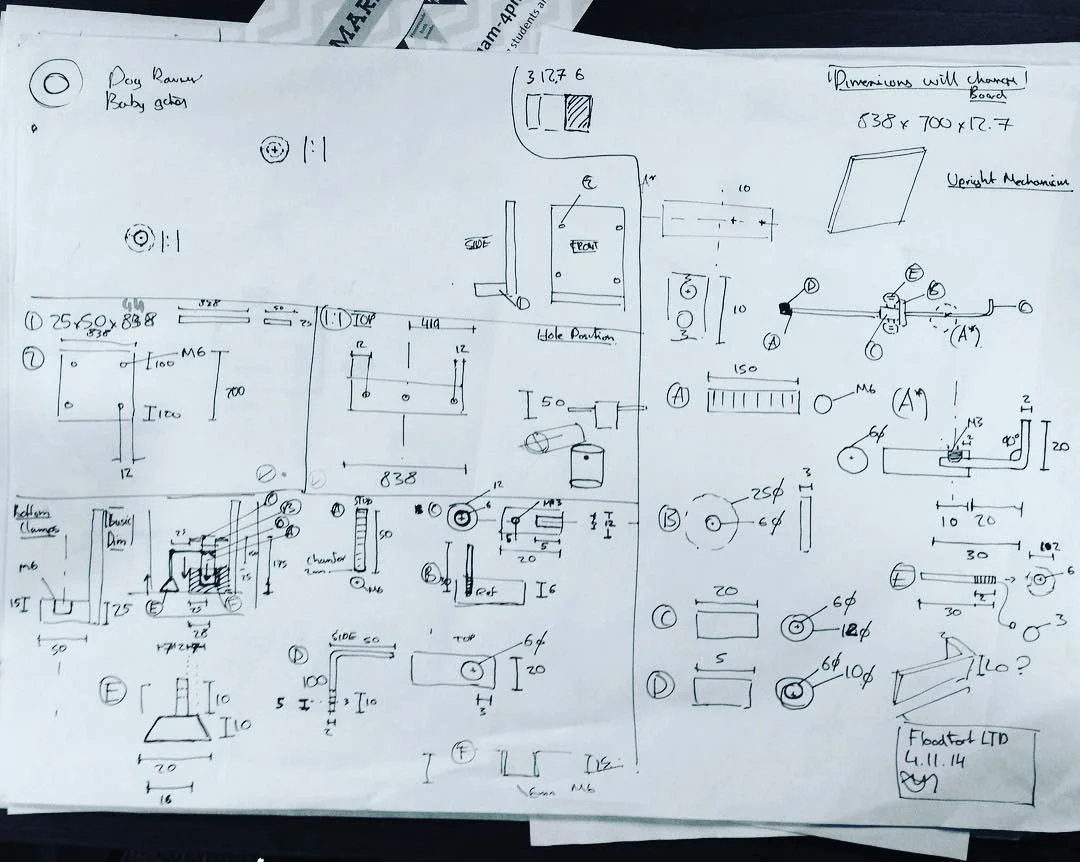 MAR
am-4pm
students an
Baby gates
1:1
1:1
3 12.7 6
Dimensions will change!
Board
838 x 700 x 12.7
Upright Mechanism
SIDE
FRONT
A*
10
3
10
3
D
E
B
A
C
(A*)
1 25x50x838
838
50
25
2
838
M6
100
700
120
12
1:1 TOP
419
12
12
838
Hole Position
50
A
150
M6
(A*)
6φ
M3
2
2
90°
20
10
20
30
B
25φ
6φ
3
C
20
6φ
12φ
D
5
6φ
10φ
E
30
2
6
3
20?
Bottom
Clamps
Basic
Dim
M6
15
25
50
25
175
25
28
E
A
STUD
50
chamfer
2mm
M6
C
12
6
5
5
20
12
B
6
D
SIDE
50
100
5
3
10
2
TOP
6φ
20
3
E
10
10
20
16
F
15
6mm M6
FloodFort LTD
4.11.14